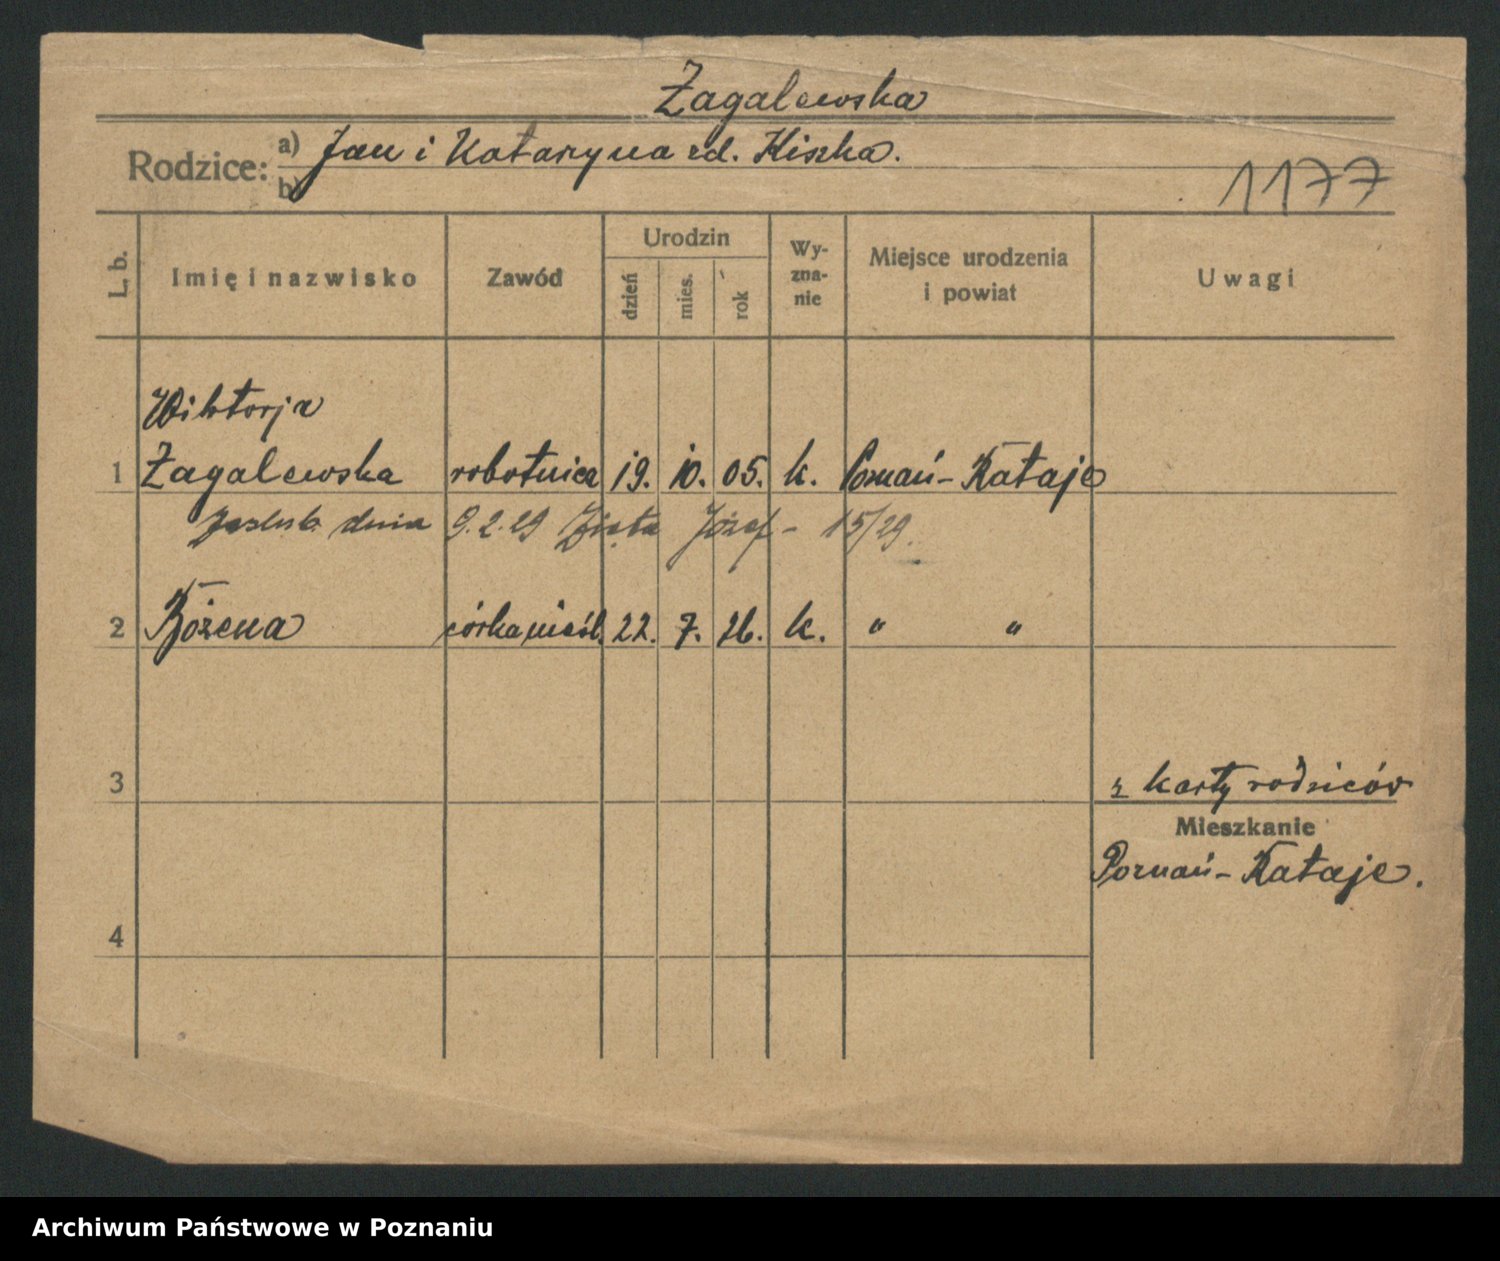 Zagalewska
Rodzice: a) Jan i Katarzyna zd. Kiszka.
b)
1177
L. b.
Imię i nazwisko
Zawód
Urodzin
dzień
mies.
rok
Wy-
zna-
nie
Miejsce urodzenia
i powiat
Uwagi
Wiktorja
1 Zagalewska robotnica 19. 10. 05. k. Poznań-Rataje
dnia 9.2.29 Zięta Józef - 15/29.
2 Bożena córka nieśl. 22. 7. 26. k. " "
3
z karty rodziców
Mieszkanie
Poznań-Rataje.
4
Archiwum Państwowe w Poznaniu